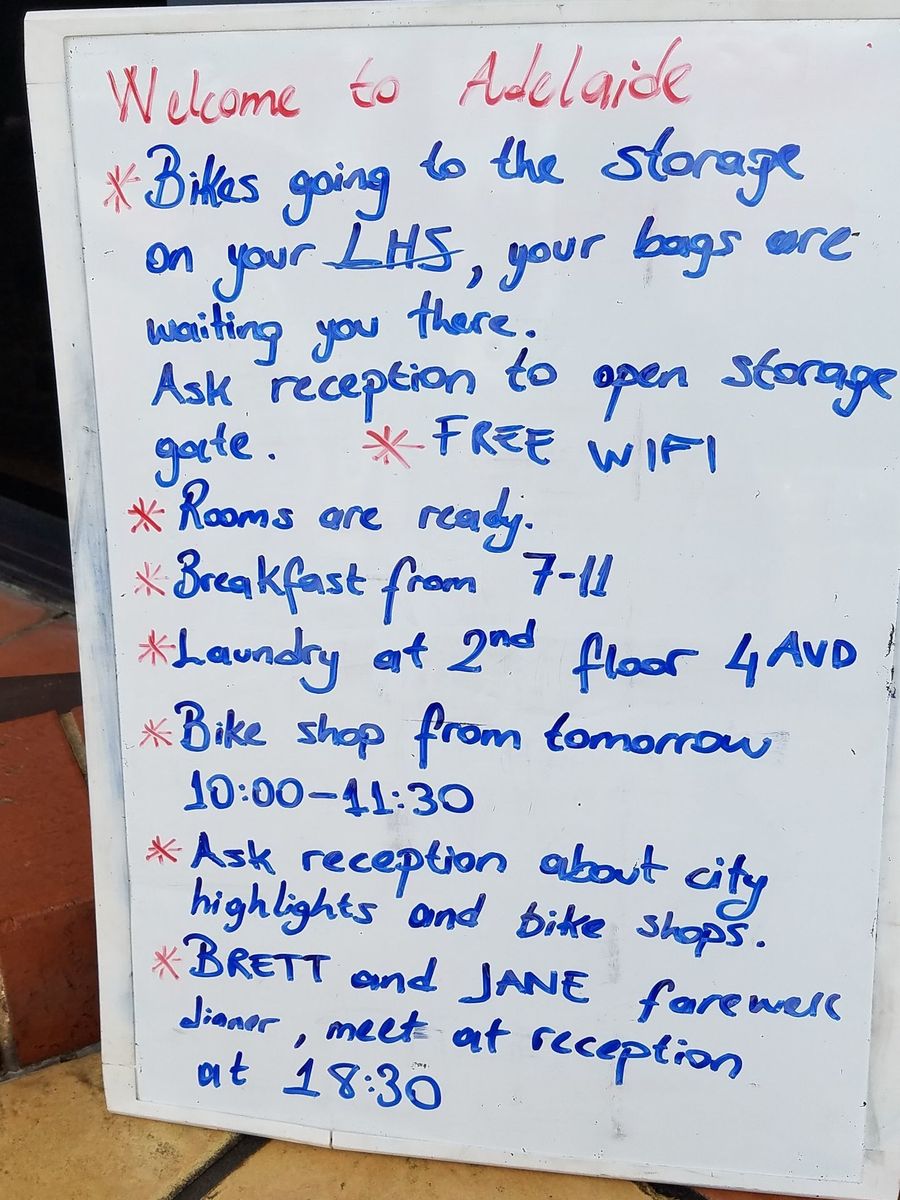 Welcome to Adelaide
* Bikes going to the storage
on your LHS, your bags are
waiting you there.
Ask reception to open storage
gate. * FREE WIFI
* Rooms are ready.
* Breakfast from 7-11
* Laundry at 2nd floor 4 AUD
* Bike shop from tomorrow
10:00-11:30
* Ask reception about city
highlights and bike shops.
* BRETT and JANE farewell
dinner, meet at reception
at 18:30